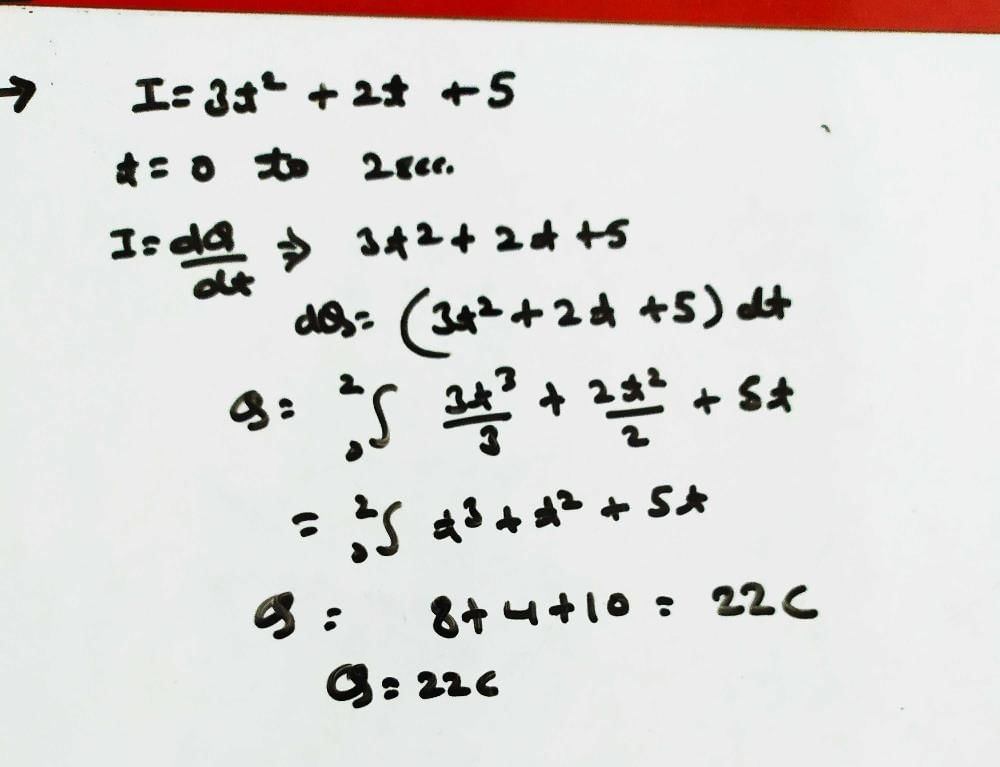 → I = 3t² + 2t + 5
t = 0 to 2 sec.
I = dQ/dt ⇒ 3t² + 2t + 5
dQ = (3t² + 2t + 5) dt
Q = ₀²∫ 3t³/3 + 2t²/2 + 5t
= ₀²∫ t³ + t² + 5t
Q = 8 + 4 + 10 = 22C
Q = 22C